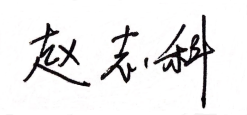 赵志科